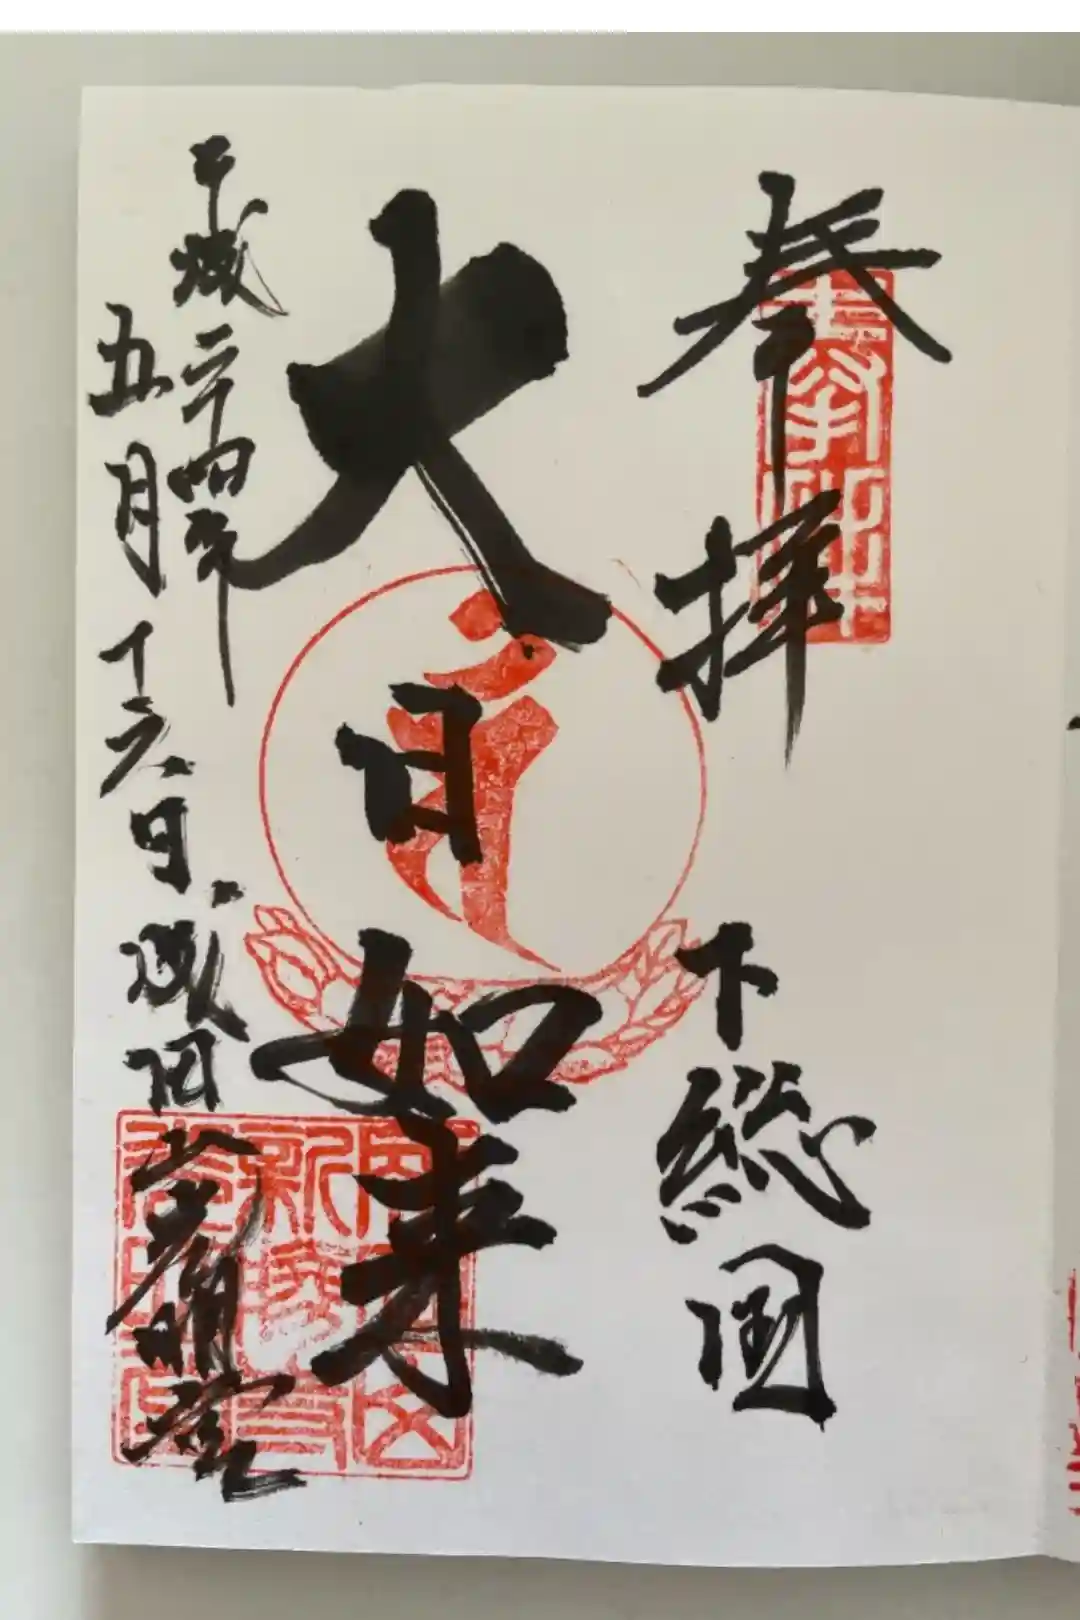 奉拝
下総国
大日如来
平成二十四年
五月十六日
成田山光明堂
成田山
新勝寺